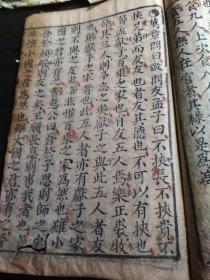 食九人上次食八人
在官者其祿以是為差
萬章問曰敢問友孟子曰不挾長不挾貴不
挾兄弟而友友也者友其德也不可以有挾也
孟獻子百乘之家也有友五人焉樂正裘牧
仲其三人則予忘之矣獻子之與此五人者友
也無獻子之家者也此五人者亦有獻子之家
則不與之友矣非惟百乘之家為然也雖小
國之君亦有之費惠公曰吾於子思則師
之矣吾於顏般則友之矣王順長息則事
非惟小國之君為然也雖大國之君亦有